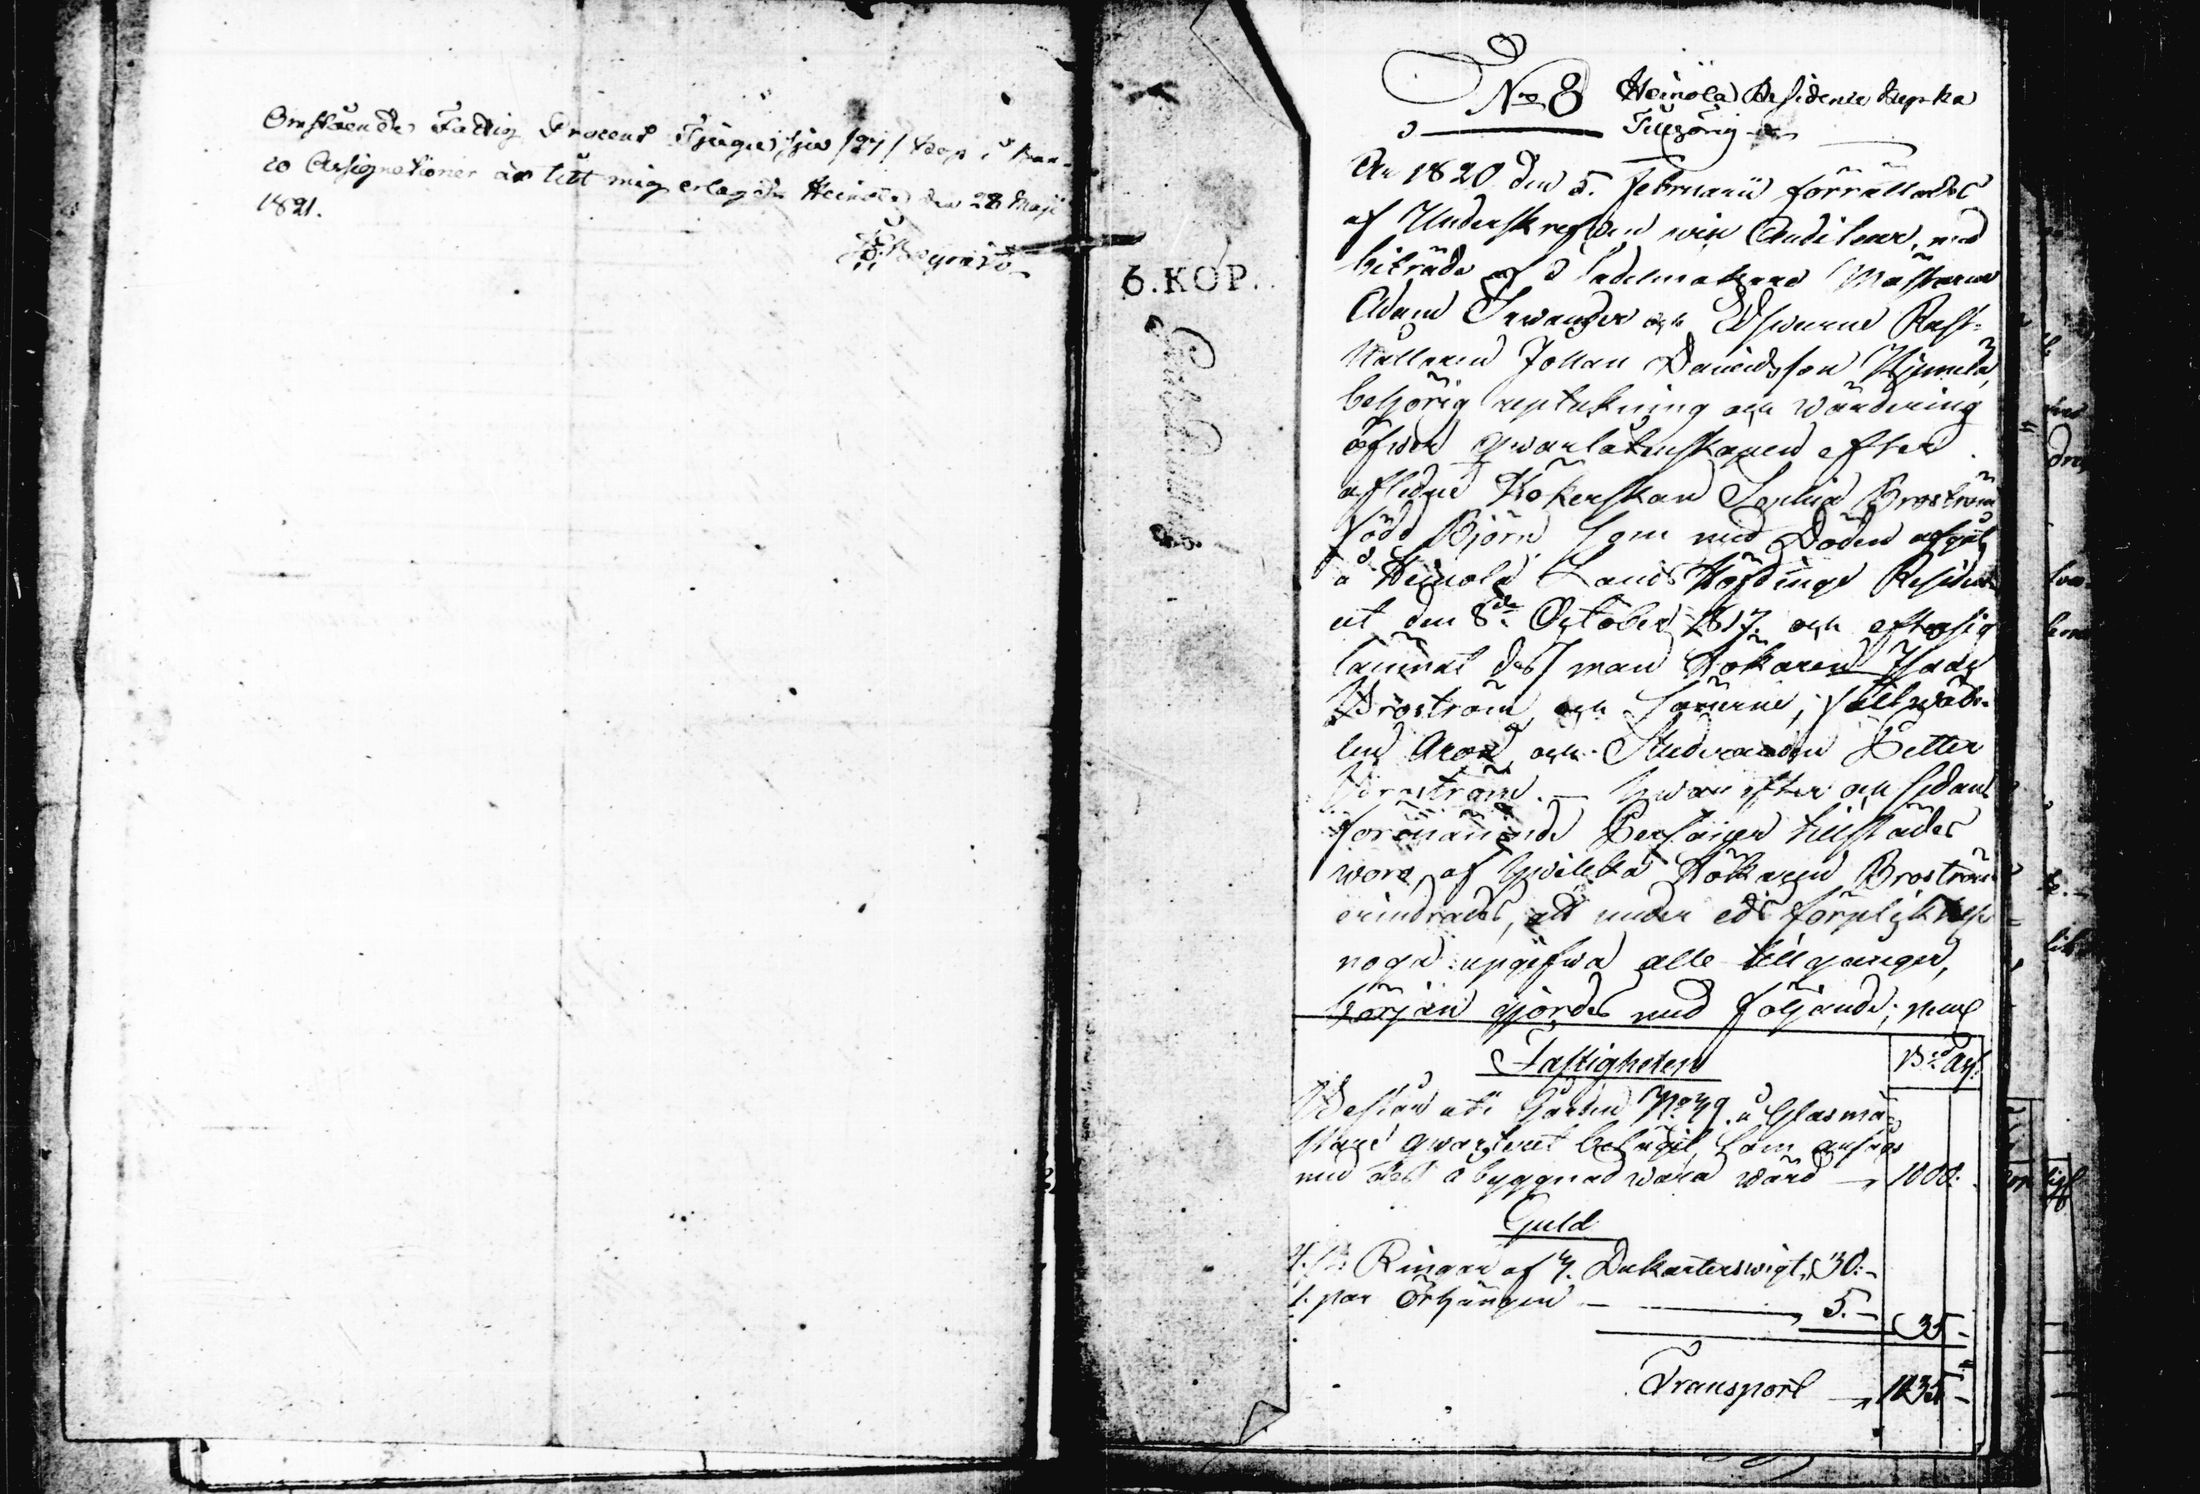 Omstående Fattig Procent Tjugu sju /27/ Kop. i Ban-
co Assignationer är till mig erlagde Heinola den 28 Maji
1821.
6. KOP.
No 8 Heinola Residence
Tillhörig
År 1820 den 5. Februarii förrättades
af Underskrefven wice Auditeur, med
biträde af Sadelmakare Mästaren
Adam och Edswurne Rått-
Hållaren Johan Davidsson
behörig upteckning och wärdering
öfwer qwarlåtenskapen efter
aflidne Hökerskan Sophia Broström
född Björn, som med Döden afgåt
å Heinola Lands Höfdinge Residen-
cet den 8de October 1817. och efter sig
lämnat dess man Hökaren Isaac
Broström och Sönerne,
Aron och Studeranden Petter
Broström. — hwarefter och sedan
förenämnde Personer tillstädes
woro, af hwilka Hökaren Broström
erindrades, att under eds förpliktelse
noga upgifwa alla tillgångar,
början gjordes med följande; neml
Fastigheten
Bco Ass.
Består uti Gården No 49. å Glasmä-
stare qwarteret belägit, som ansågs
med dess åbyggnad wara wärd — 1000:
Guld
4. st: Ringar af 4. Dukaters wigt, 30:-
1. par Örhängen — 5.-
35 -
Transport — 1035 -